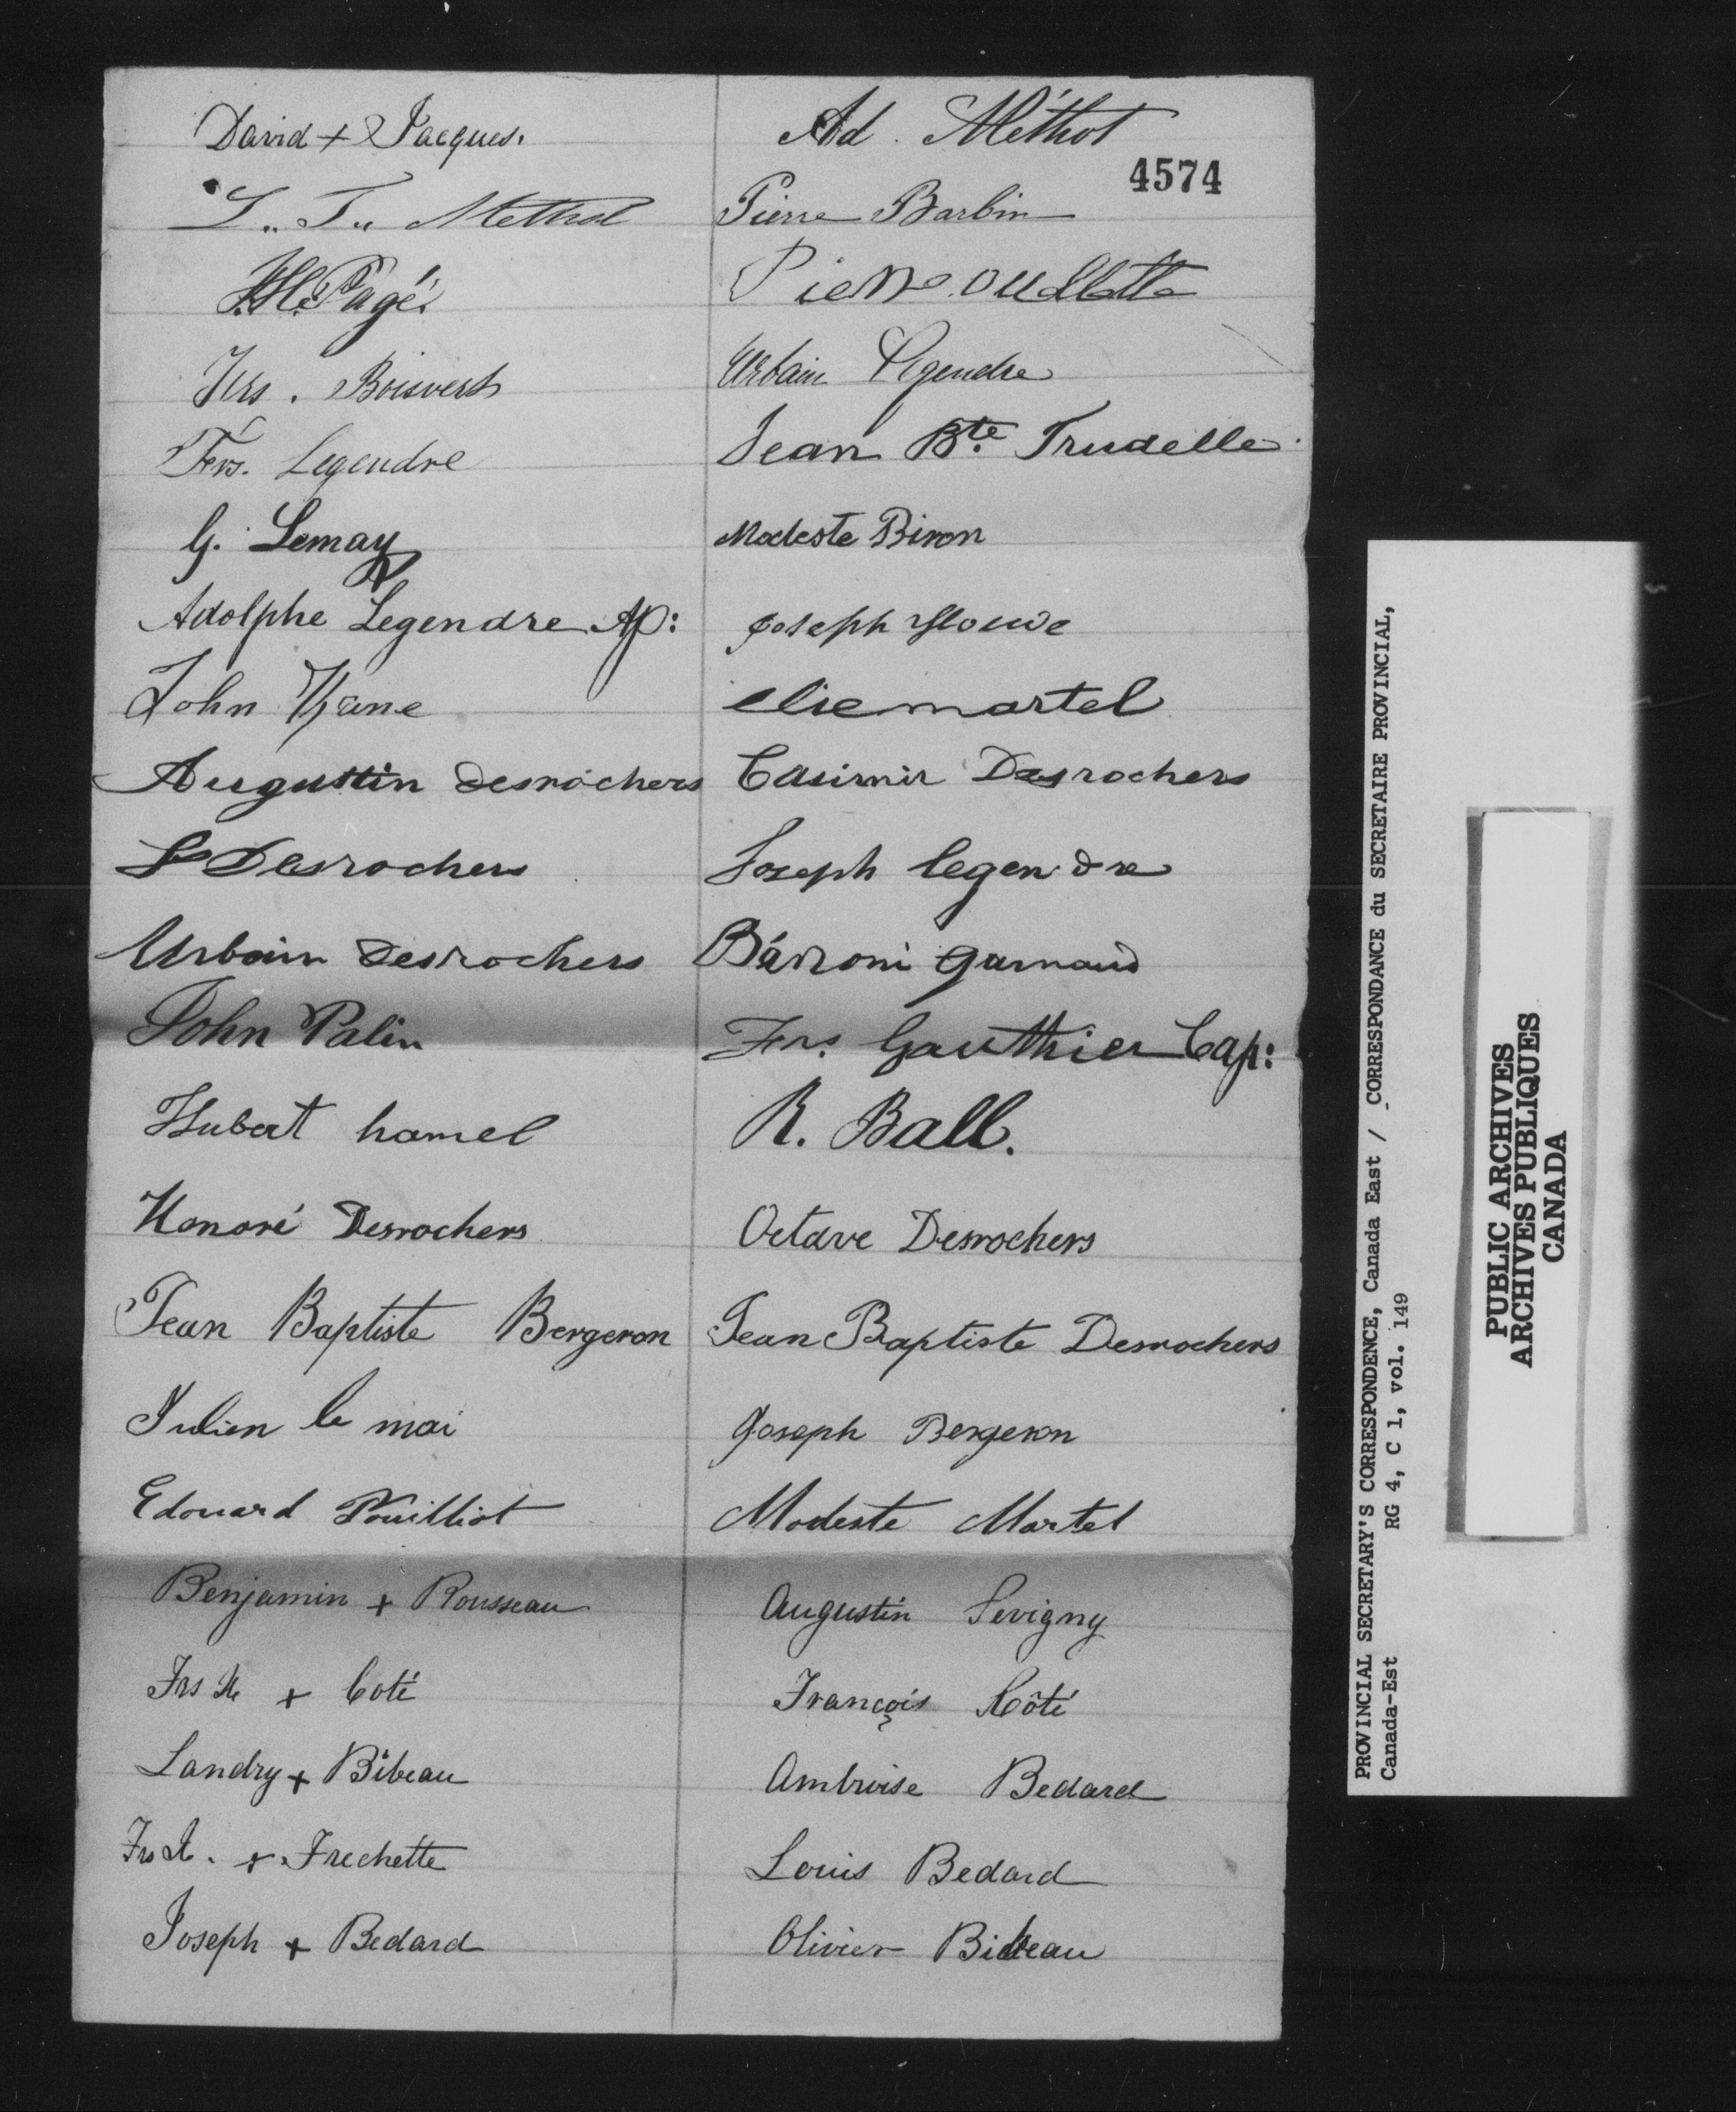 David + Jacques.
L. T. Methot
Pagé
Frs. Boisvert
Frs. Legendre
G. Lemay
Adolphe Legendre
John Kane
Augustin desrochers
Desrochers
Urbain desrochers
John Palin
Hubert hamel
Honoré Desrochers
Jean Baptiste Bergeron
Julien le mai
Edouard Pouilliot
Benjamin + Rousseau
Frs X + Coté
Landry + Bibeau
Frs X. + Frechette
Joseph + Bedard
Ad. Méthot
4574
Pierre Barbin
Pierre Ouellette
Urbain Legendre
Jean Bte. Trudelle
Modeste Biron
Joseph
elie martel
Casimir Desrochers
Joseph legendre
garnaud
Frs. Gauthier Cap:
R. Ball.
Octave Desrochers
Jean Baptiste Desrochers
Joseph Bergeron
Modeste Martel
Augustin Sevigny
François Côté
Ambroise Bedard
Louis Bedard
Olivier Bibeau
PROVINCIAL SECRETARY'S CORRESPONDENCE, Canada East / CORRESPONDANCE du SECRETAIRE PROVINCIAL,
Canada-Est RG 4, C 1, vol. 149
PUBLIC ARCHIVES
ARCHIVES PUBLIQUES
CANADA